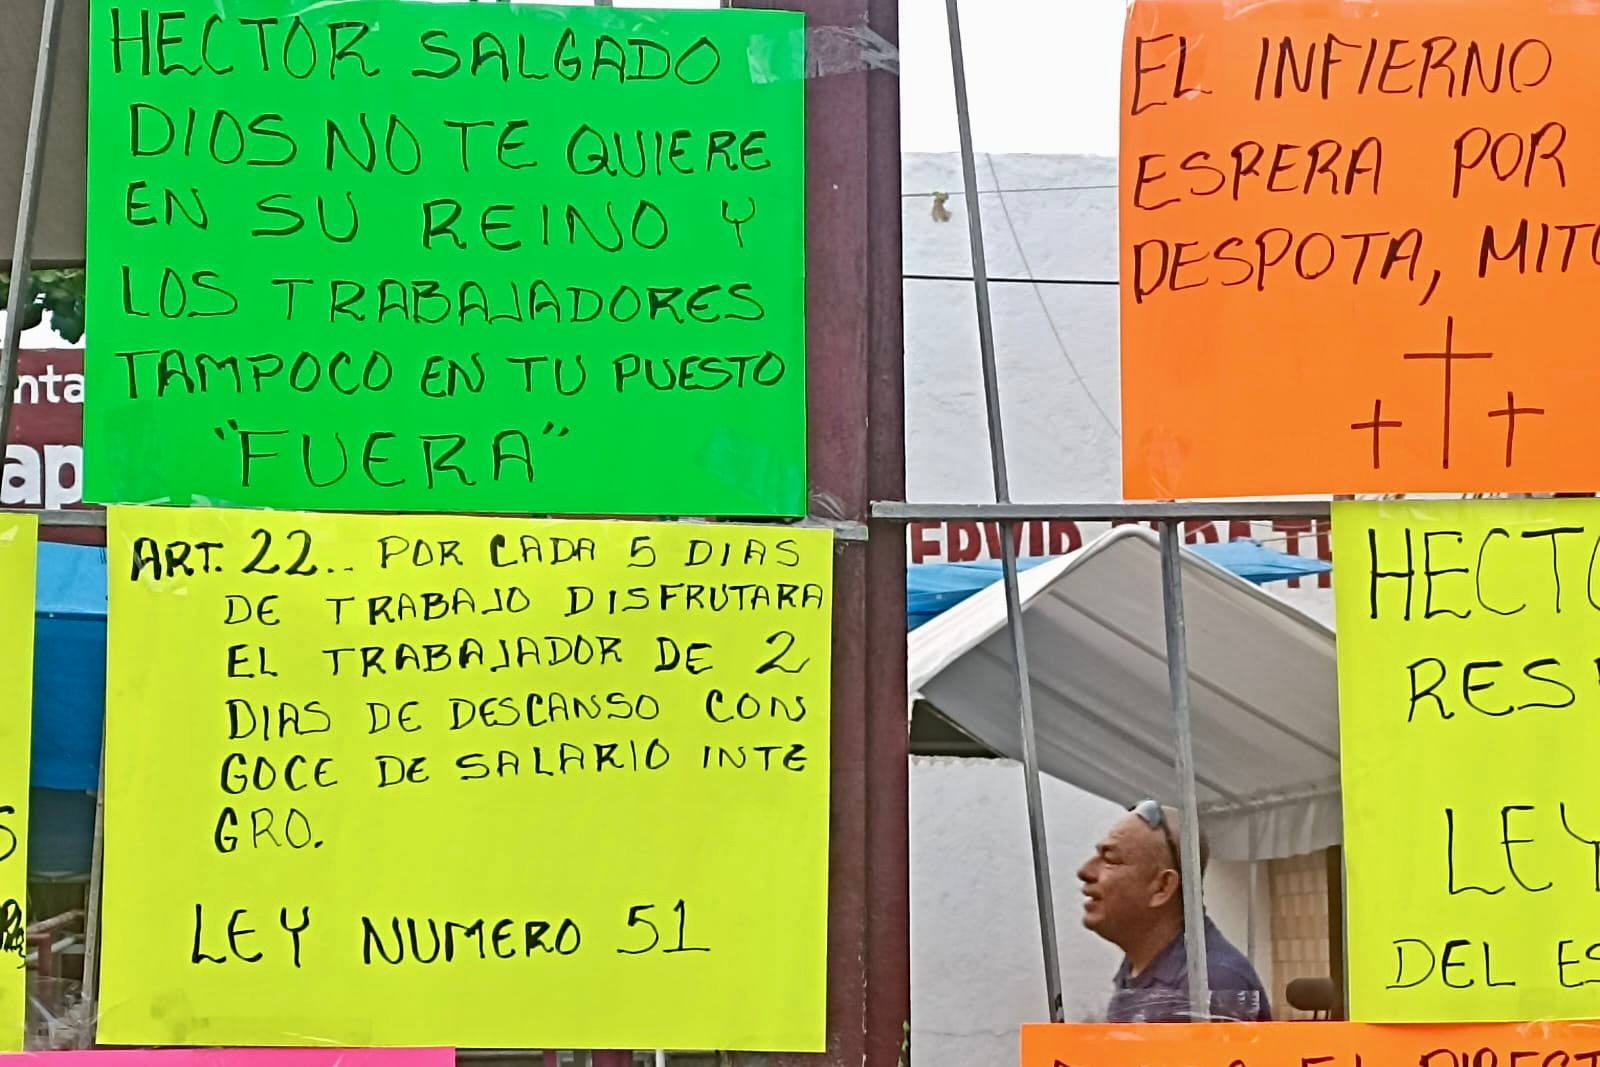 HECTOR SALGADO
DIOS NO TE QUIERE
EN SU REINO Y
LOS TRABAJADORES
TAMPOCO EN TU PUESTO
"FUERA"
EL INFIERNO
ESPERA POR
DESPOTA, MITO
nta
ap
ART. 22.. POR CADA 5 DIAS
DE TRABAJO DISFRUTARA
EL TRABAJADOR DE 2
DIAS DE DESCANSO CON
GOCE DE SALARIO INTE
GRO.
LEY NUMERO 51
ERVIR PARA TR
HECTO
RESP
LEY
DEL ES
S
EL DIRECT